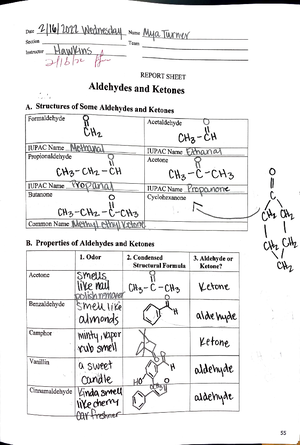 Date 2/16/2022 Wednesday Name Mya Turner
Section Team
Instructor Hawkins
2/16/22
REPORT SHEET
Aldehydes and Ketones
A. Structures of Some Aldehydes and Ketones
Formaldehyde
O
CH₂
IUPAC Name Methanal
Acetaldehyde
O
CH₃-CH
IUPAC Name Ethanal
Propionaldehyde
O
CH₃-CH₂-CH
IUPAC Name Propanal
Acetone
O
CH₃-C-CH₃
IUPAC Name Propanone
Butanone
O
CH₃-CH₂-C-CH₃
Common Name Methyl ethyl ketone
Cyclohexanone
O
C
CH₂ CH₂
CH₂ CH₂
CH₂
B. Properties of Aldehydes and Ketones
1. Odor 2. Condensed Structural Formula 3. Aldehyde or Ketone?
Acetone smells like nail polish remover
O
CH₃-C-CH₃
Ketone
Benzaldehyde smell like almonds
aldehyde
Camphor minty, vapor rub smell
Ketone
Vanillin a sweet candle
HO
aldehyde
Cinnamaldehyde kinda smell like cherry car freshner
aldehyde
55